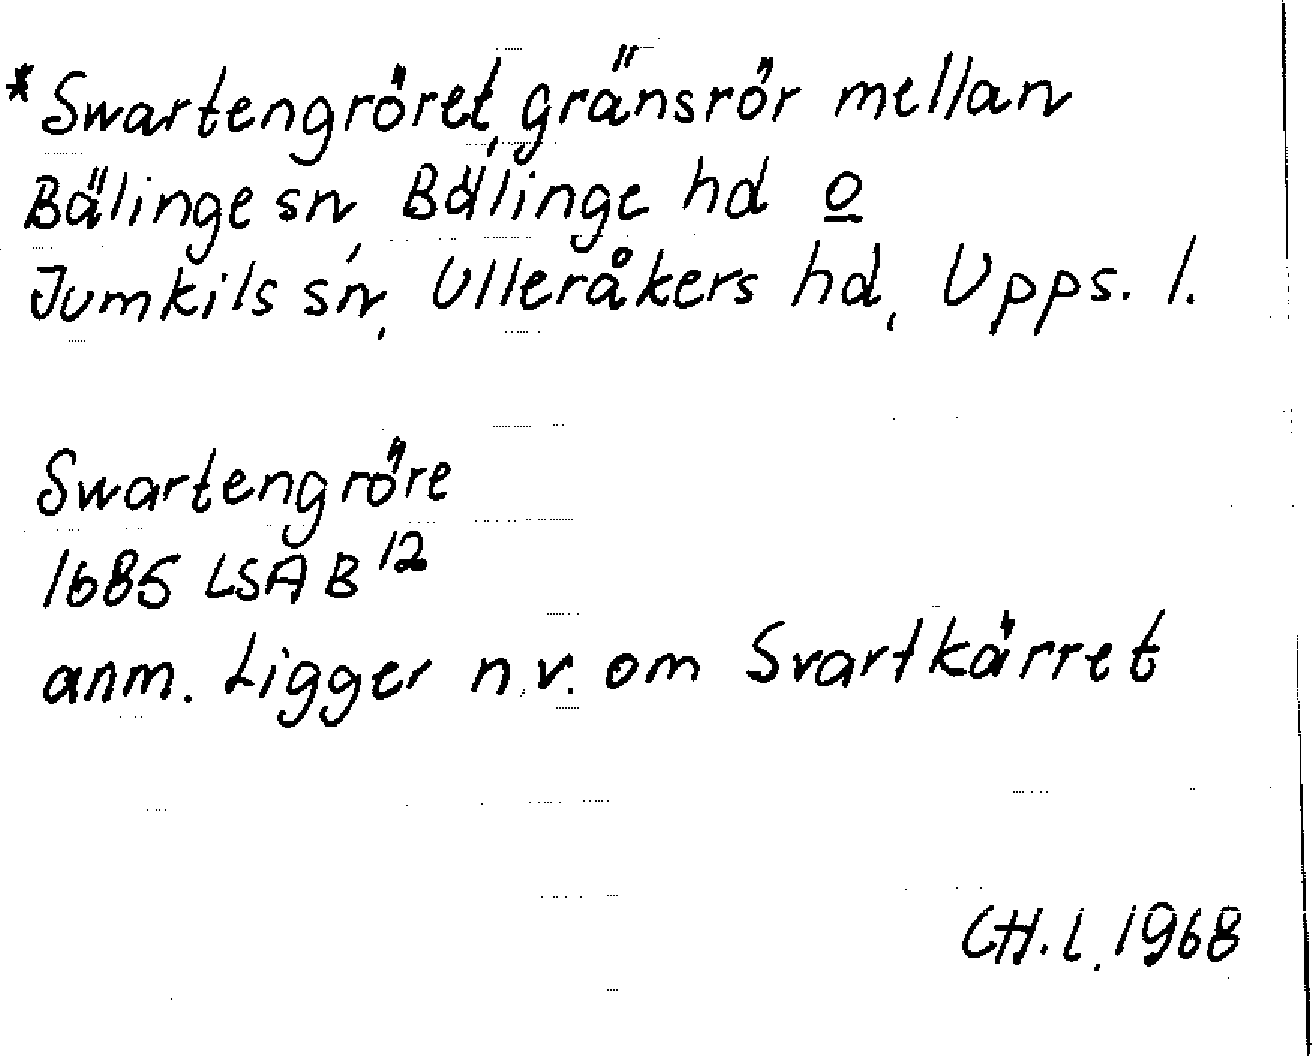 *Swartengröret, gränsrör mellan
Bälinge sn, Bälinge hd o
Jumkils sn, Ulleråkers hd, Upps. l.
Swartengröre
1685 LSA B 12
anm. Ligger n.v. om Svartkärret
CH.L. 1968